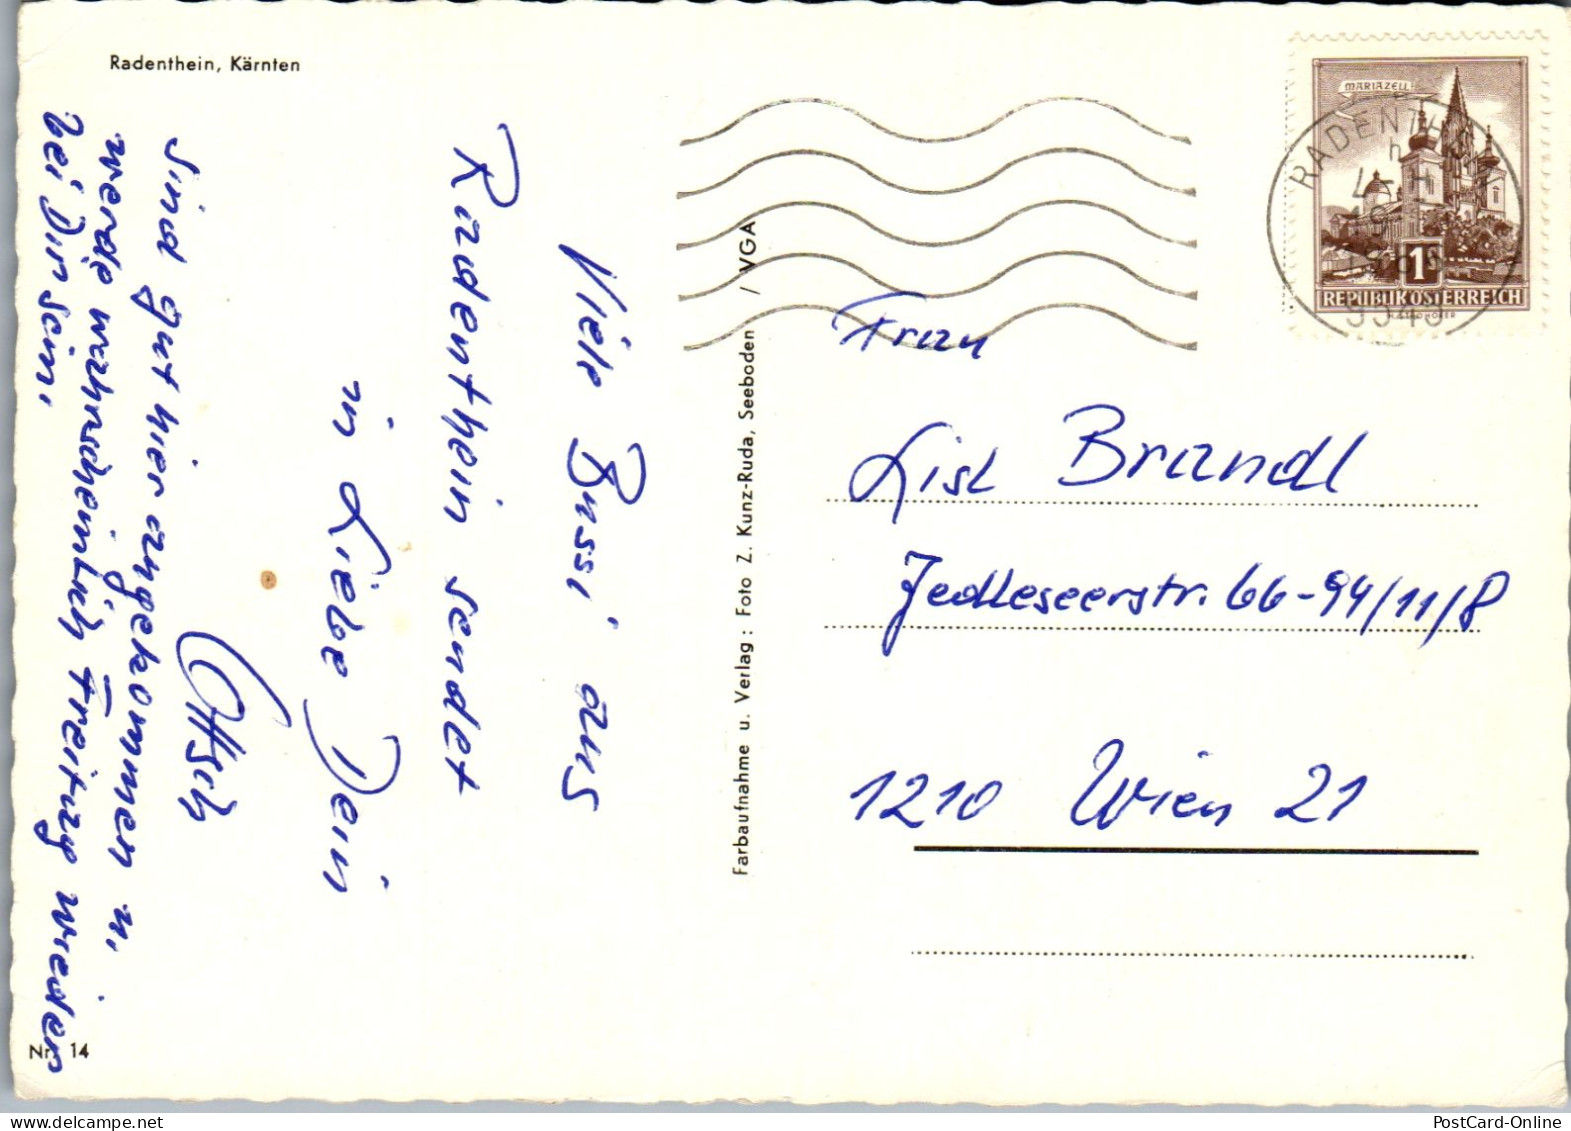 Radenthein, Kärnten
Viele Bussi aus
Radenthein sendet
in Liebe Dein
Ottsch
Sind gut hier angekommen u.
werde wahrscheinlich Freitag wieder
bei Dir sein.
Nr. 14
Farbaufnahme u. Verlag: Foto Z. Kunz-Ruda, Seeboden / VGA
MARIAZELL
1
REPUBLIK ÖSTERREICH
RADENTHEIN
Frau
Lisl Brandl
Jedleseerstr. 66-94/11/8
1210 Wien 21
PostCard-Online
www.delcampe.net